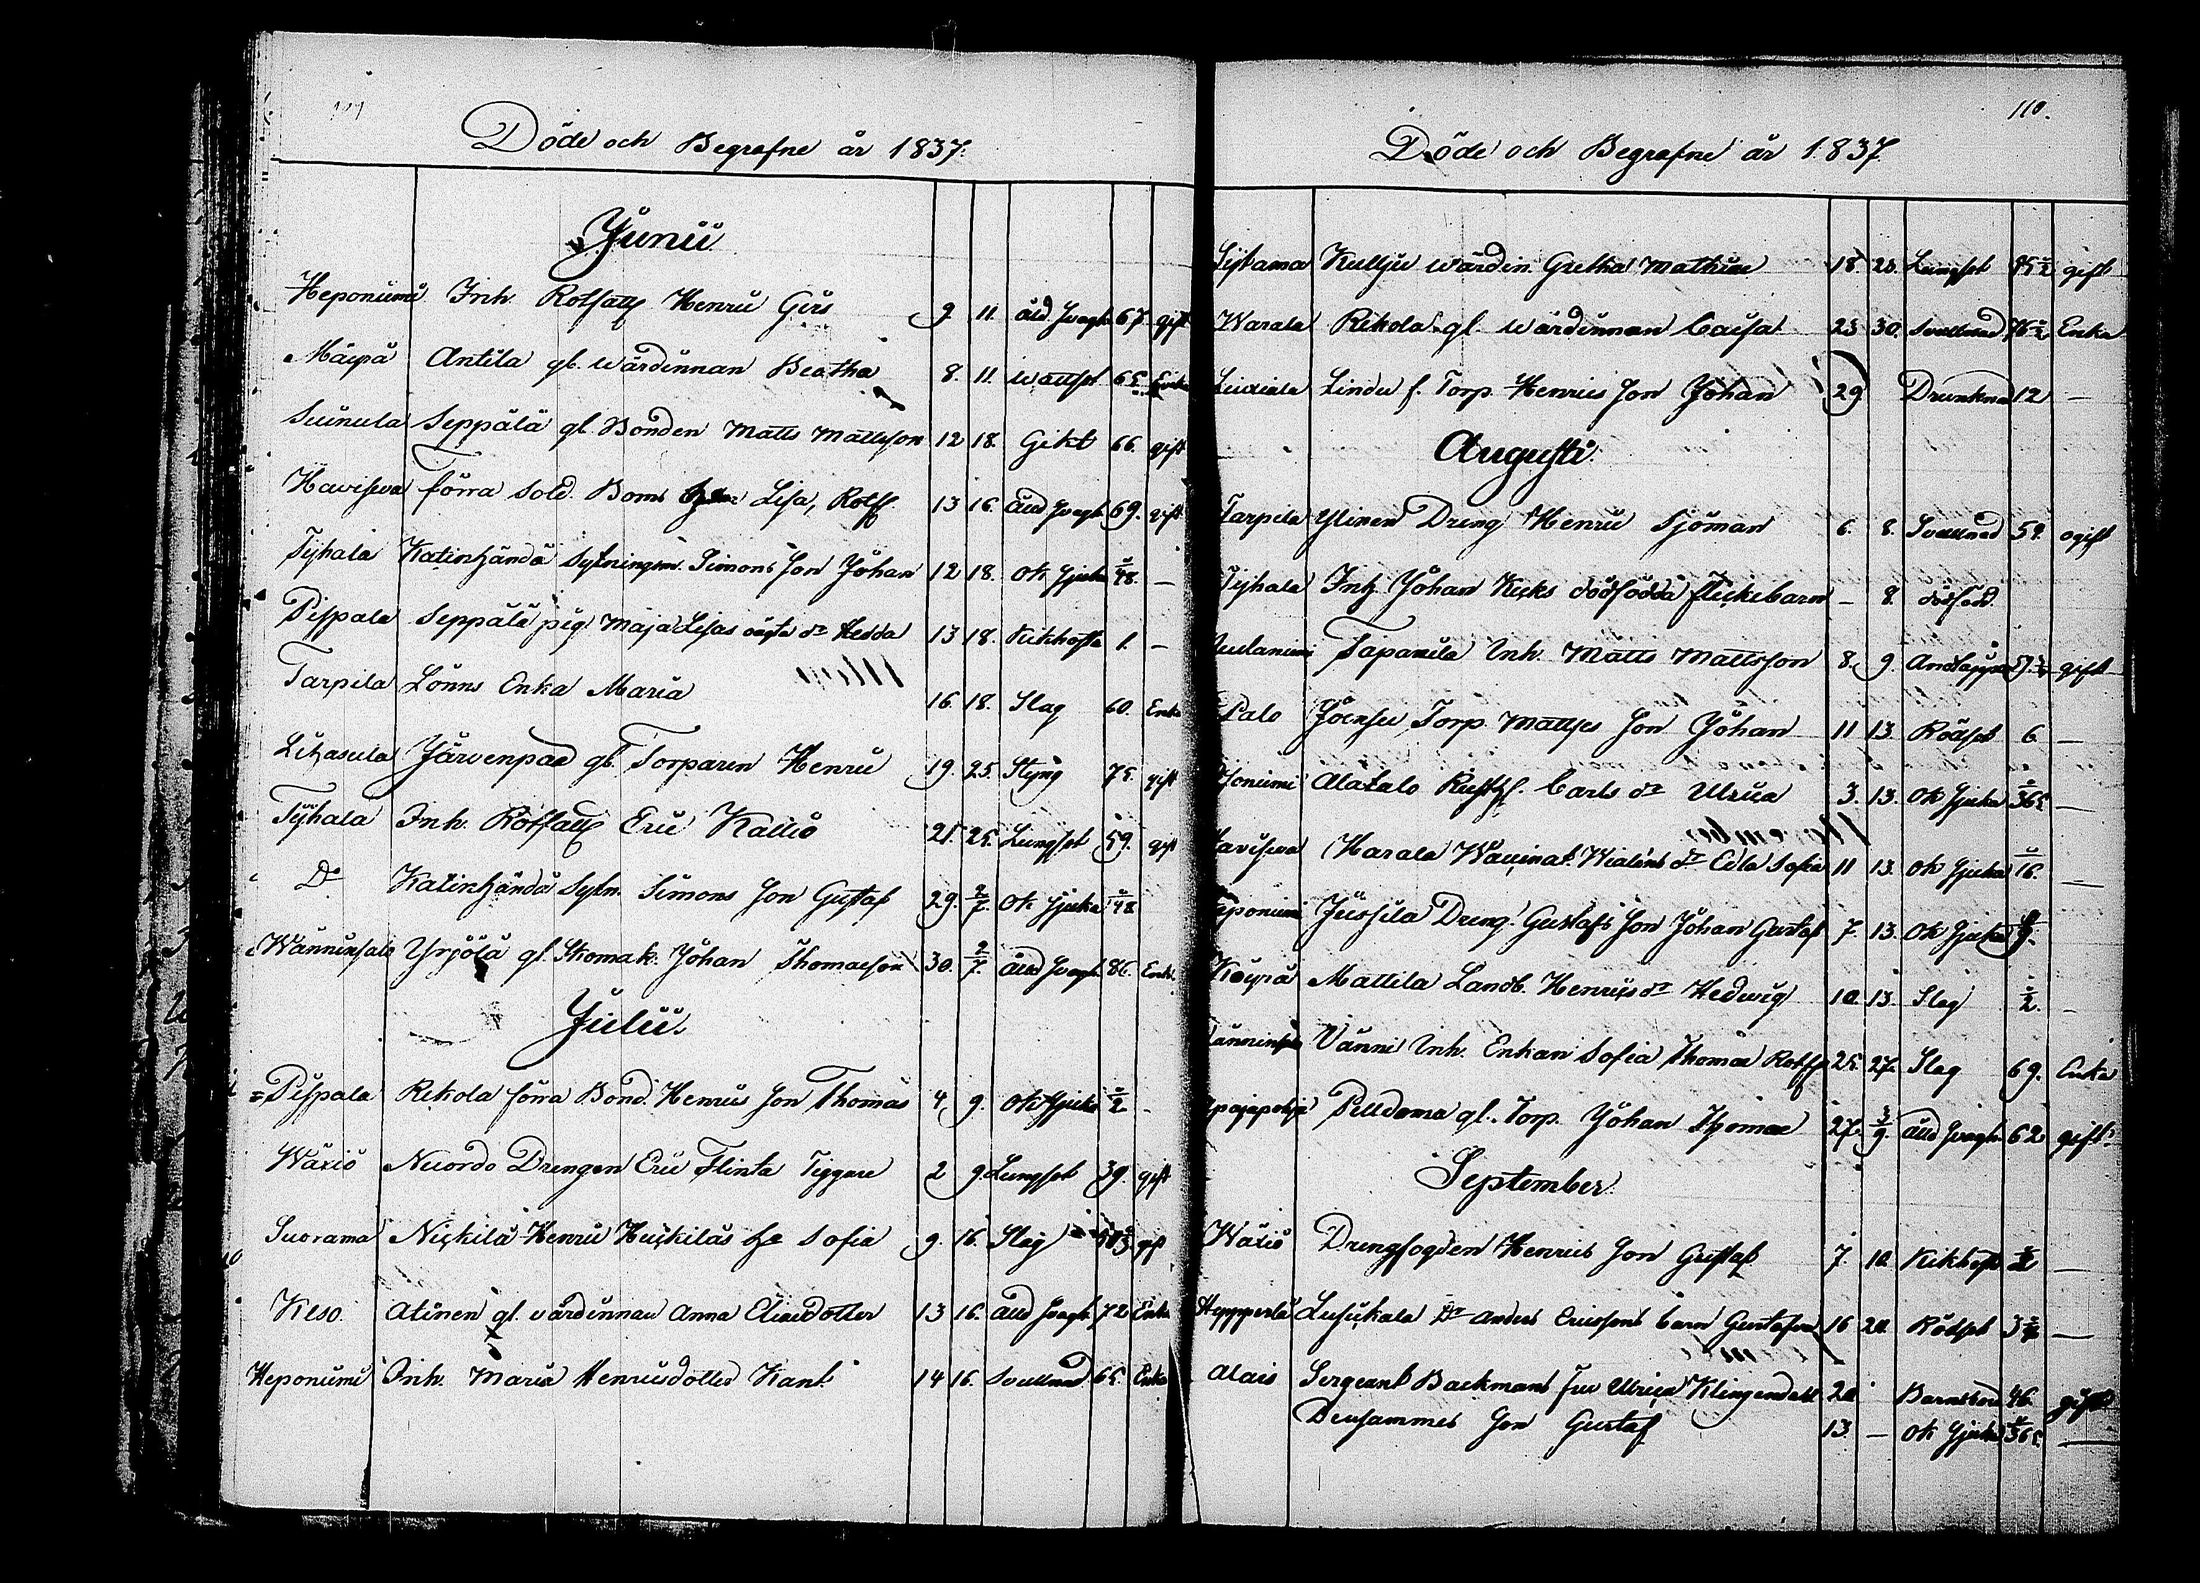 109
Döde och Begrafne år 1837.
Junii
Heponiemi Inh. Rotfatt. Henric Girs 9 11. åld. svagh. 67 gift
Mäipä Antila gl. wärdinnan Beatha 8. 11. wattsot 65. Enka
Suinula Seppälä gl. Bonden Matts Mattsson 12 18. Gikt 66. gift
Haviseva förra Sold. Boms Lisa, Rotf. 13 16. åld svagh 69. gift
Tyhala Katinhändä Sytningsm. Simons Son Johan 12 18. ok sjukd 48. —
Pispala Seppälä pig Maja Lisas oägta dr Hedda 13 18. Kikhosta 1. —
Tarpila Lönns Enka Maria 16. 18. Slag 60. Enka
Lihasula Järvenpää gl. Torparen Henric 19. 25. Styng 75. gift
Tyhala Inh. Rotfatt Eric Kallio 21. 25. Lungsot 59. gift
Do Katinhändä Sytm. Simons Son Gustaf 29. 2/7. ok sjukd 48
Wänninsalo Yrjölä gl. Skomak. Johan Thomasson 30. 2/7. åld svagh 86. Enkl.
Julii.
Pispala Rekola förra Bond. Henrics Son Thomas 4 9. ok sjukd 2 —
Wäxiö Neuordo Drengen Eric Flinta Tiggare 2 9. Lungsot 39. gift
Suorama Nickilä Henric Heickiläs h:a Sofia 9. 16. Slag gift
Keso. Alinen gl. värdinnan Anna Eliaedotter 13 16. åld svagh 72 Enka
Heponiemi Inh. Maria Henricsdotter Kant. 14 16. Svullnad 65. Enka
110.
Döde och Begrafne år 1837
Kulju wärdin. Gretha Mathiae 18 23. Lungsot gift
Warala Rekola gl. wärdinnan Caisa 23 30. Svullnad Enka
Liuxiala Linda f. Torp. Henrics Son Johan 29 Drunknad 12 —
Augusti.
Tarpila Ylinen Dreng Henric Sjöman 6. 8. Svullnad 59. ogift
Tyhala Inh. Johan Kecks dödfödda flickebarn — 8. dödföd.
Tapanila Inh. Matts Mattsson 8. 9. gift
Palo Joensu Torp. Mattses Son Johan 11 13. Rödsot 6 —
Alatalo Rusth. Carls dr Ulrica 3. 13. ok sjukd 365. —
Haviseva Harala Dr Edla Sofia 11 13. ok sjukd 16. —
Heponiemi Jussila Dreng. Gustafs Son Johan Gustaf 7. 13. ok sjukd
Kåyrä Mattila Landb. Henrics dr Hedwig 10. 13. Slag 2. —
Wänninsalo Vänni Inh. Enkan Sofia Thomae Rotf. 25. 27. Slag 69. Enka
Pelldama gl. Torp. Johan Thomae 27. 3/9. åld svagh 62 gift
September
Wäxiö Drengfogden Henrics Son Gustaf 7. 10. Kikhost —
Dr Anders Ericssons barn Gustafva 16 20. Rödsot 3 —
Alais Sergeant Backmans fru Ulrica Klingendahl 20 Barnsbörd 46. gift
Densammes Son Gustaf 13 — ok sjukd 365 —